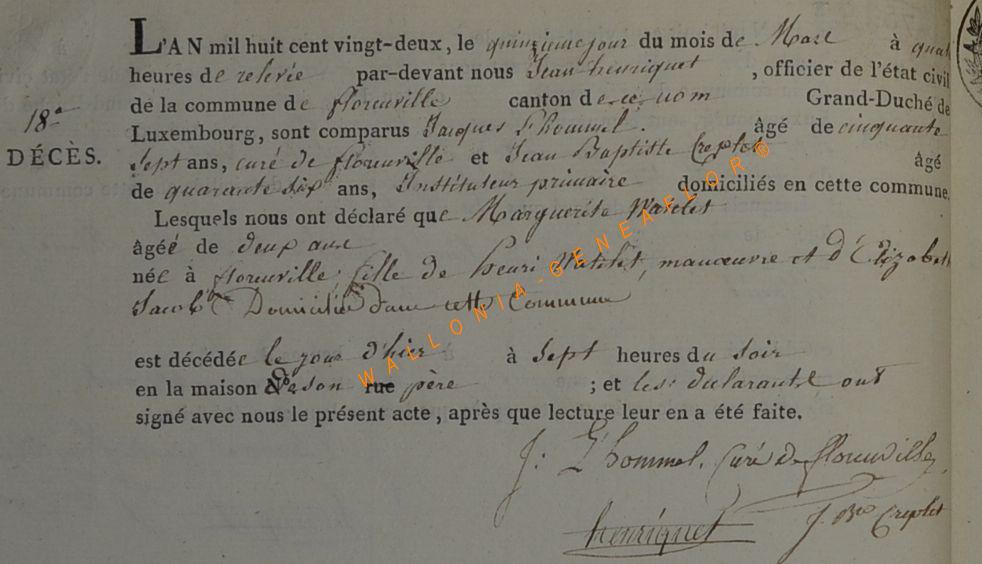 L'AN mil huit cent vingt-deux, le quinzieme jour du mois de Mars à quat
heures de relevée par-devant nous Jean henriquet , officier de l'état civil
de la commune de florenville canton de ce nom Grand-Duché de
18e
DÉCÈS.
Luxembourg, sont comparus Jacques L'hommel . âgé de cinquante
sept ans, curé de florenville et Jean Baptiste Creplet âgé
de quarante six ans, Instituteur primaire domiciliés en cette commune.
Lesquels nous ont déclaré que Marguerite Watelet
âgéé de deux ans
née à florenville, fille de henri Watelet, manœuvre et d'Elizabeth
Jacob Domicilié dans cette Commune
est décédée le jour d'hier à à sept heures du soir
en la maison N° de son rue père ; et les déclarants ont
signé avec nous le présent acte, après que lecture leur en a été faite.
J: L'hommel, Curé de florenville
henriquet J. Bte Creplet
WALLONIA-GENEAFLOR©